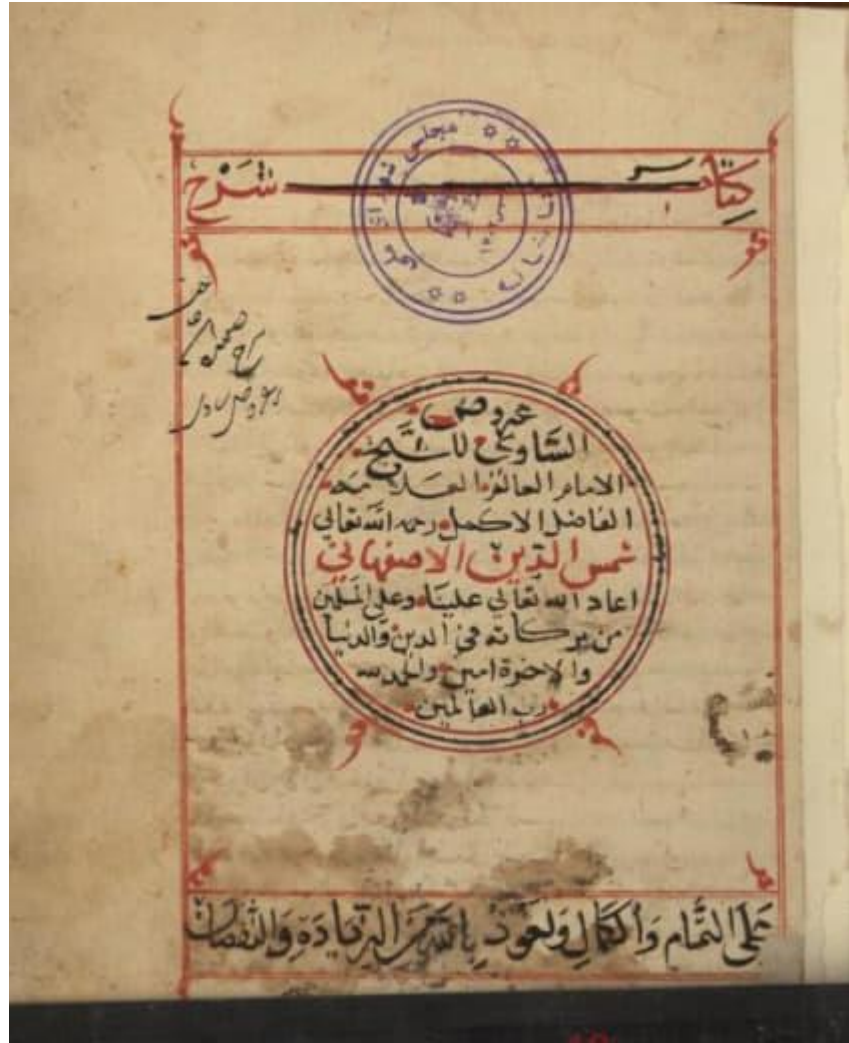 كتاب شرح
عروض
الساوي للشيخ
الامام العالم العلامة
الفاضل الاكمل رحمه الله تعالى
شمس الدين الاصفهاني
اعاد الله تعالى علينا وعلى المسلمين
من بركاته في الدين والدنيا
والاخرة امين والحمد لله
رب العالمين
على التمام والكمال ونعوذ بالله من الزيادة والنقصان